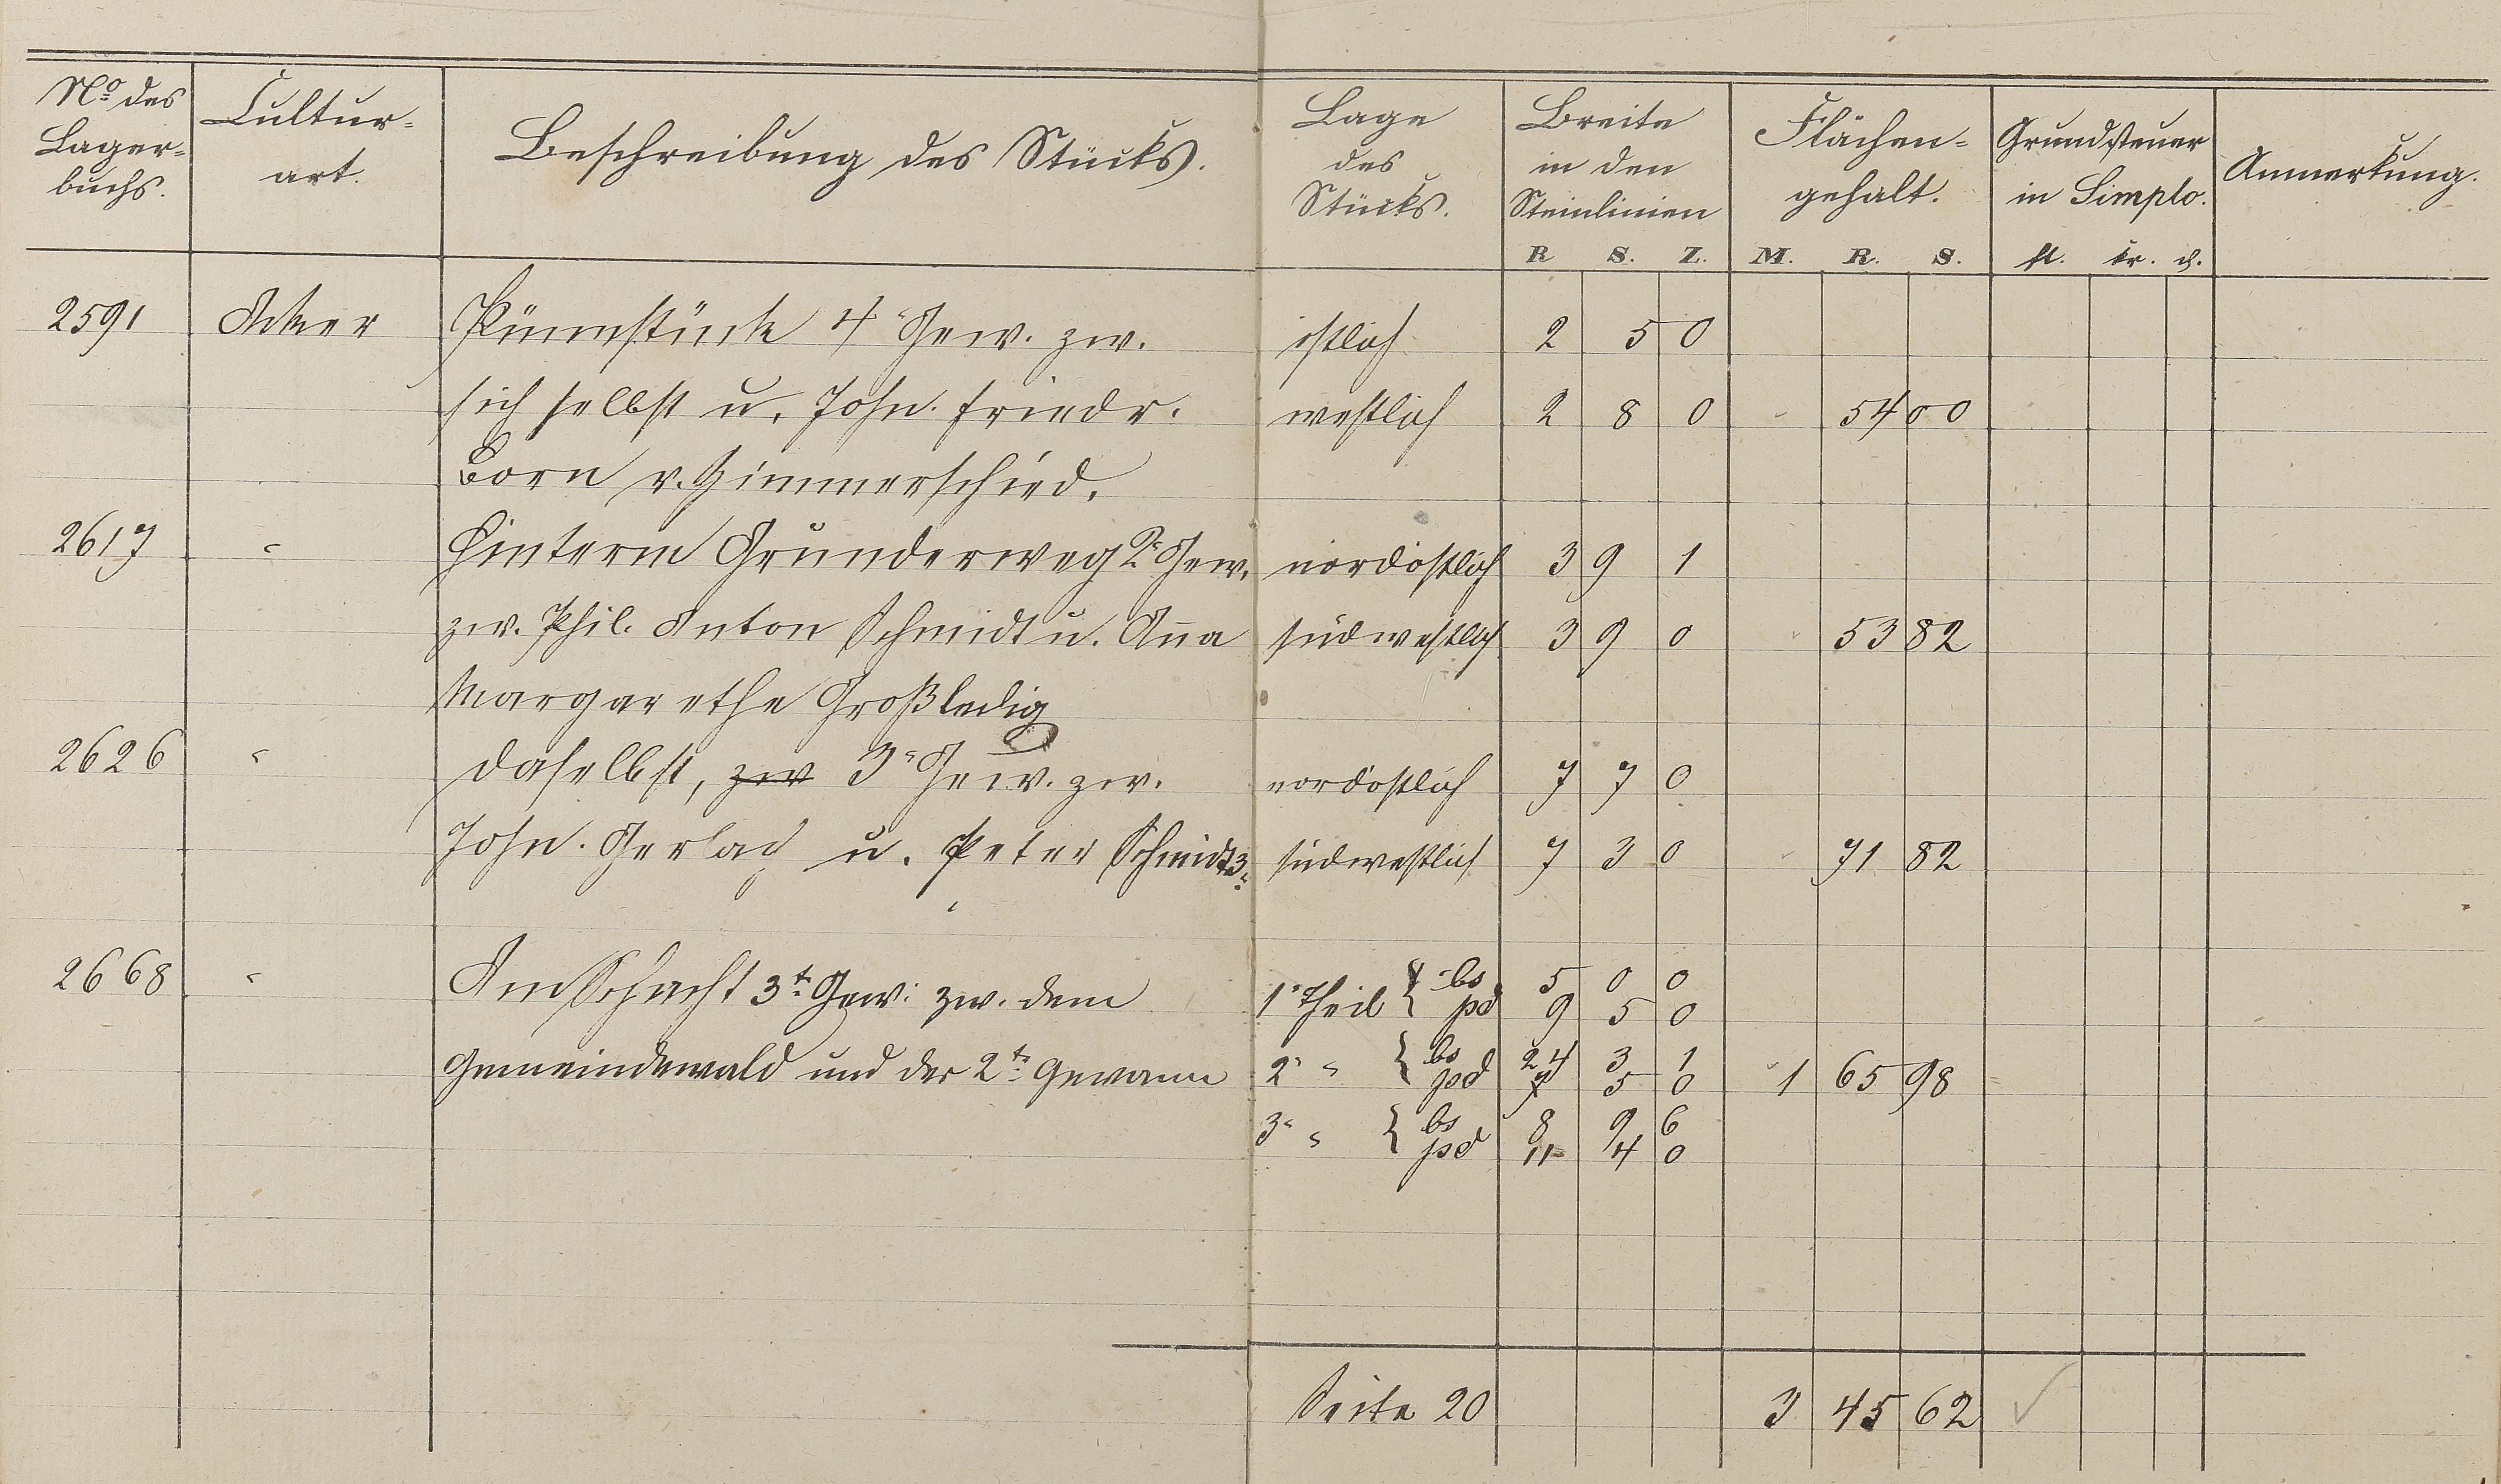 No des Lager= buchs.
Cultur= art.
Beschreibung des Stücks.
Lage des Stücks.
Breite in den Steinlinien
Flächen= gehalt.
Grundsteuer in Simplo.
Anmerkung.
R S. Z. M. R. S. fl. kr. d.
2591 Acker Pünnstück 4r Gew. zw. östlich 2 5 0
sich selbst u. John. Friedr. westlich 2 8 0 - 54 00
Born v. Gimmerschied.
2617 " Hinterm Grunderweg 2r Gew. nordöstlich 3 9 1
zw. Phil. Anton Schmidt u. Aña südwestlich 3 9 0 53 82
Margarethe Groß ledig
2626 " daselbst, zw 3r Gew. zw. nordöstlich 7 7 0
John. Gerlach u. Peter Schmidt 3r südwestlich 7 3 0 71 82
2668 " Am Schacht 3te Gew: zw. dem 1r Theil { bs 5 0 0
pd 9 5 0
Gemeindewald und der 2te Gewann 2r " { bs 24 3 1
pd 7 5 0 1 65 98
3r " { bs 8 9 6
pd 11 4 0
Seite 20 3 45 62 ✓